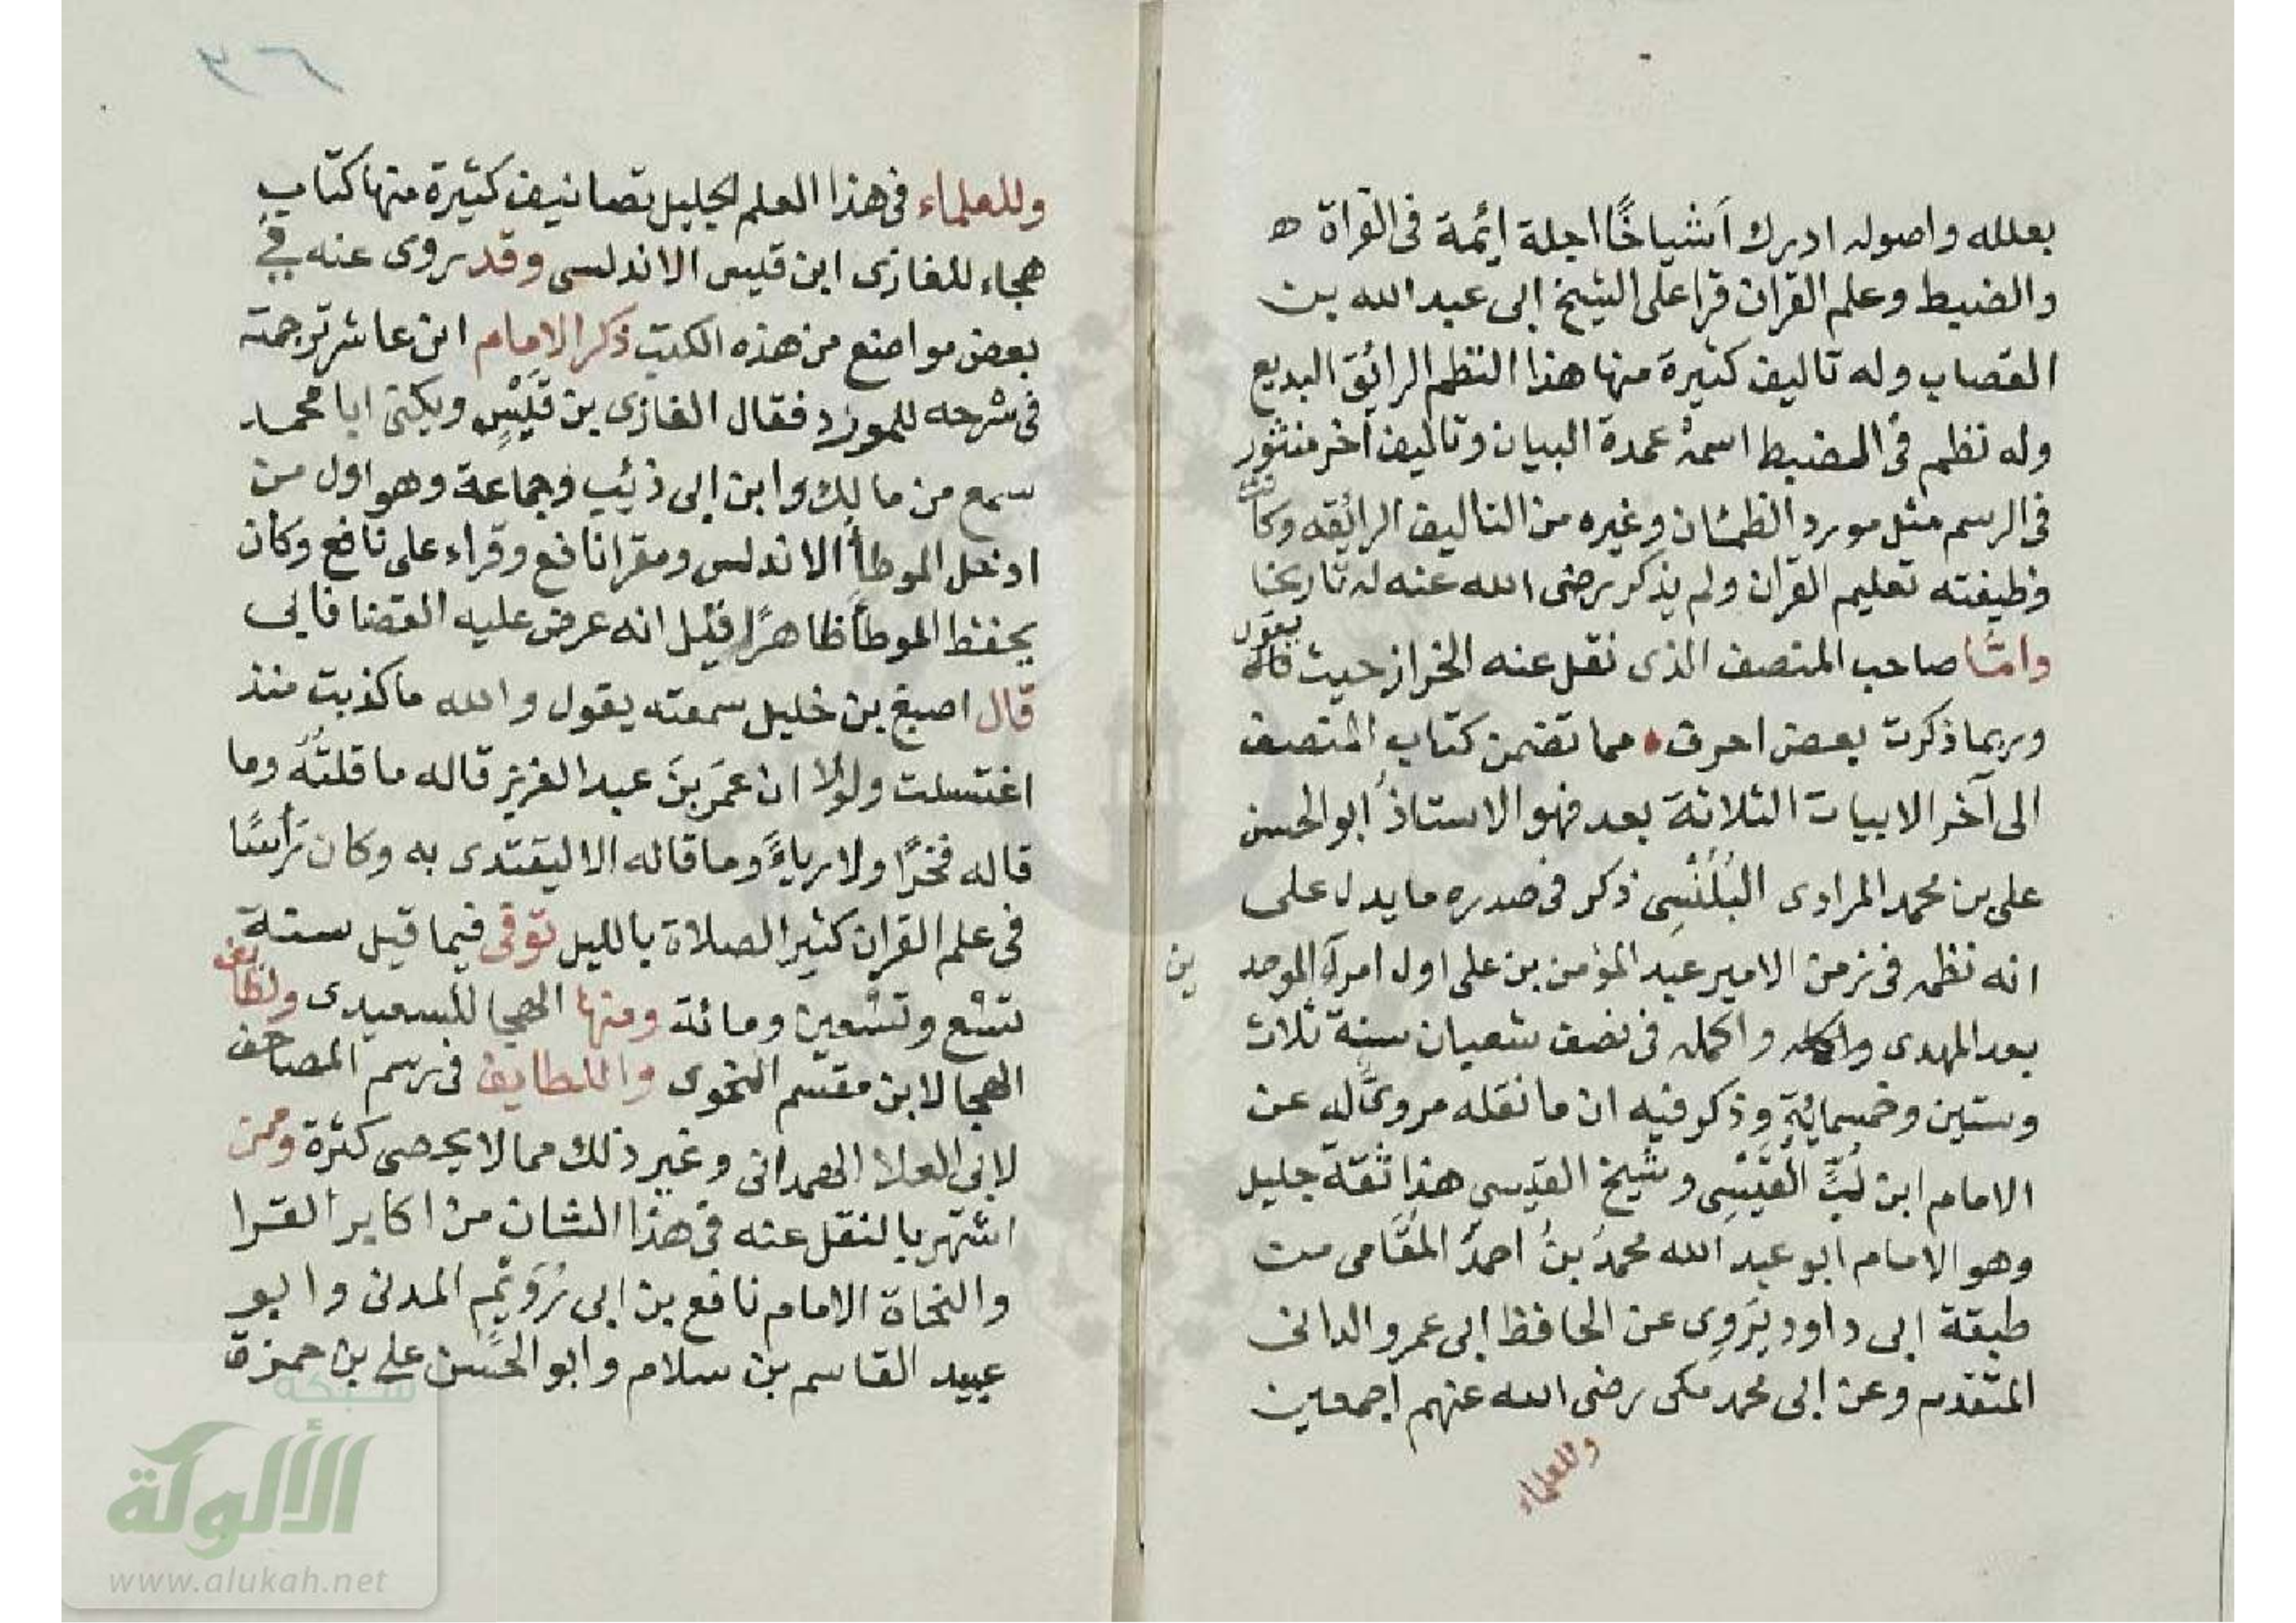 بعلله واصوله ادرك اَشياخًا اجلة ائمة فى القراة ه
والضبط وعلم القران قرا على الشيخ ابى عبد الله بن
القصاب وله تاليف كثيرة منها هذا النظم الرائق البديع
وله نظم فى الضبط اسمهُ عمدة البيان وتاليف آخر منثور
فى الرسم مثل مورد الظمئان وغيره من التاليف الرائقه وكانت
وظيفته تعليم القران ولم يذكر رضى الله عنه له تاريخا
وامّا صاحب المنصف الذى نقل عنه الخراز حيث قال يقول
وربما ذكرت بعض احرف • مما تضمن كتاب المنصف
الى آخر الابيات الثلاثة بعد فهو الاستاذُ ابو الحسن
على بن محمد المرادى البُلَنْسِى ذكر فى صدره ما يدل على
انه نظمه فى زمن الامير عبد المؤمن بن على اول امرآء الموحدين
بعد المهدى واكمله فى نصف شعبان سنة ثلاث
وستين وخمسمائةٍ وذكر فيه ان ما نقله مرويًّا له عن
الامام ابن لُبٍّ القَيْسِى وشيخ القيسى هذا ثقة جليل
وهو الامام ابو عبد الله محمدُ بنُ احمدَ المغَّامى من
طبقة ابى داود يَروِى عن الحافظ ابى عمرو الدانى
المتقدم وعن ابى محمد مكى رضى الله عنهم اجمعين
وللعلماء
وللعلماء فى هذا العلم الجليل تصانيف كثيرة منها كتاب
هجاء للغازى ابن قيس الاندلسى وقد روى عنه فى
بعض مواضع من هذه الكتب ذكر الامام ابن عاشر ترجمته
فى شرحه للمورد فقال الغازى بن قَيْسٍ ويكنى ابا محمد
سمع من مالك وابن ابى ذئب وجماعة وهو اول من
ادخل الموطأ الاندلس ومقرا نافع وقراء على نافع وكان
يحفظ الموطأ ظاهرًا قيل انه عرض عليه القضا فابى
قال اصبغ بن خليل سمعته يقول والله ما كذبت منذ
اغتسلت ولولا ان عمَرَ بنَ عبد العزيز قاله ما قلتُهُ وما
قاله فخرًا ولا رياءً وما قاله الا ليقتدى به وكان رَأسًا
فى علم القران كثير الصلاة بالليل توفى فيما قيل سنة
تسْع وتسْعين ومائة ومنها الهجا للسعيدى ولطايف
الهجا لابن مقسم النحوى واللطايف فى رسم المصاحف
لابى العلا الهمدانى وغير ذلك مما لا يحصى كثرة وممن
اشتهر بالنقل عنه فى هذا الشان من اكابر القرا
والنحاة الامام نافع بن ابى رُوَيْم المدنى وابو
عبيد القاسم بن سلام وابو الحَسَن على بن حمزة
شبكة
الألوكة
www.alukah.net